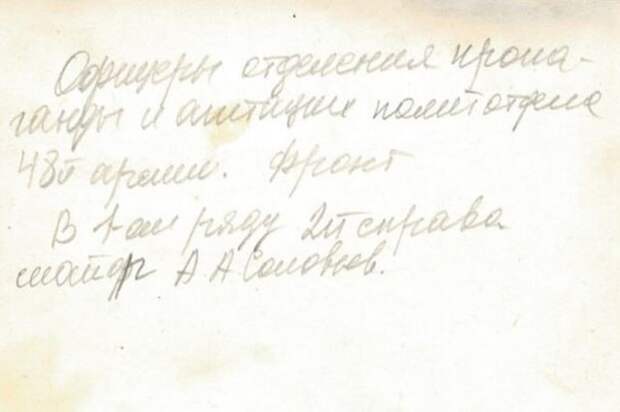 Офицеры отделения пропа-
ганды и агитации политотдела
48й армии. Фронт
В 1-ом ряду 2й справа
майор А А Соловьев.